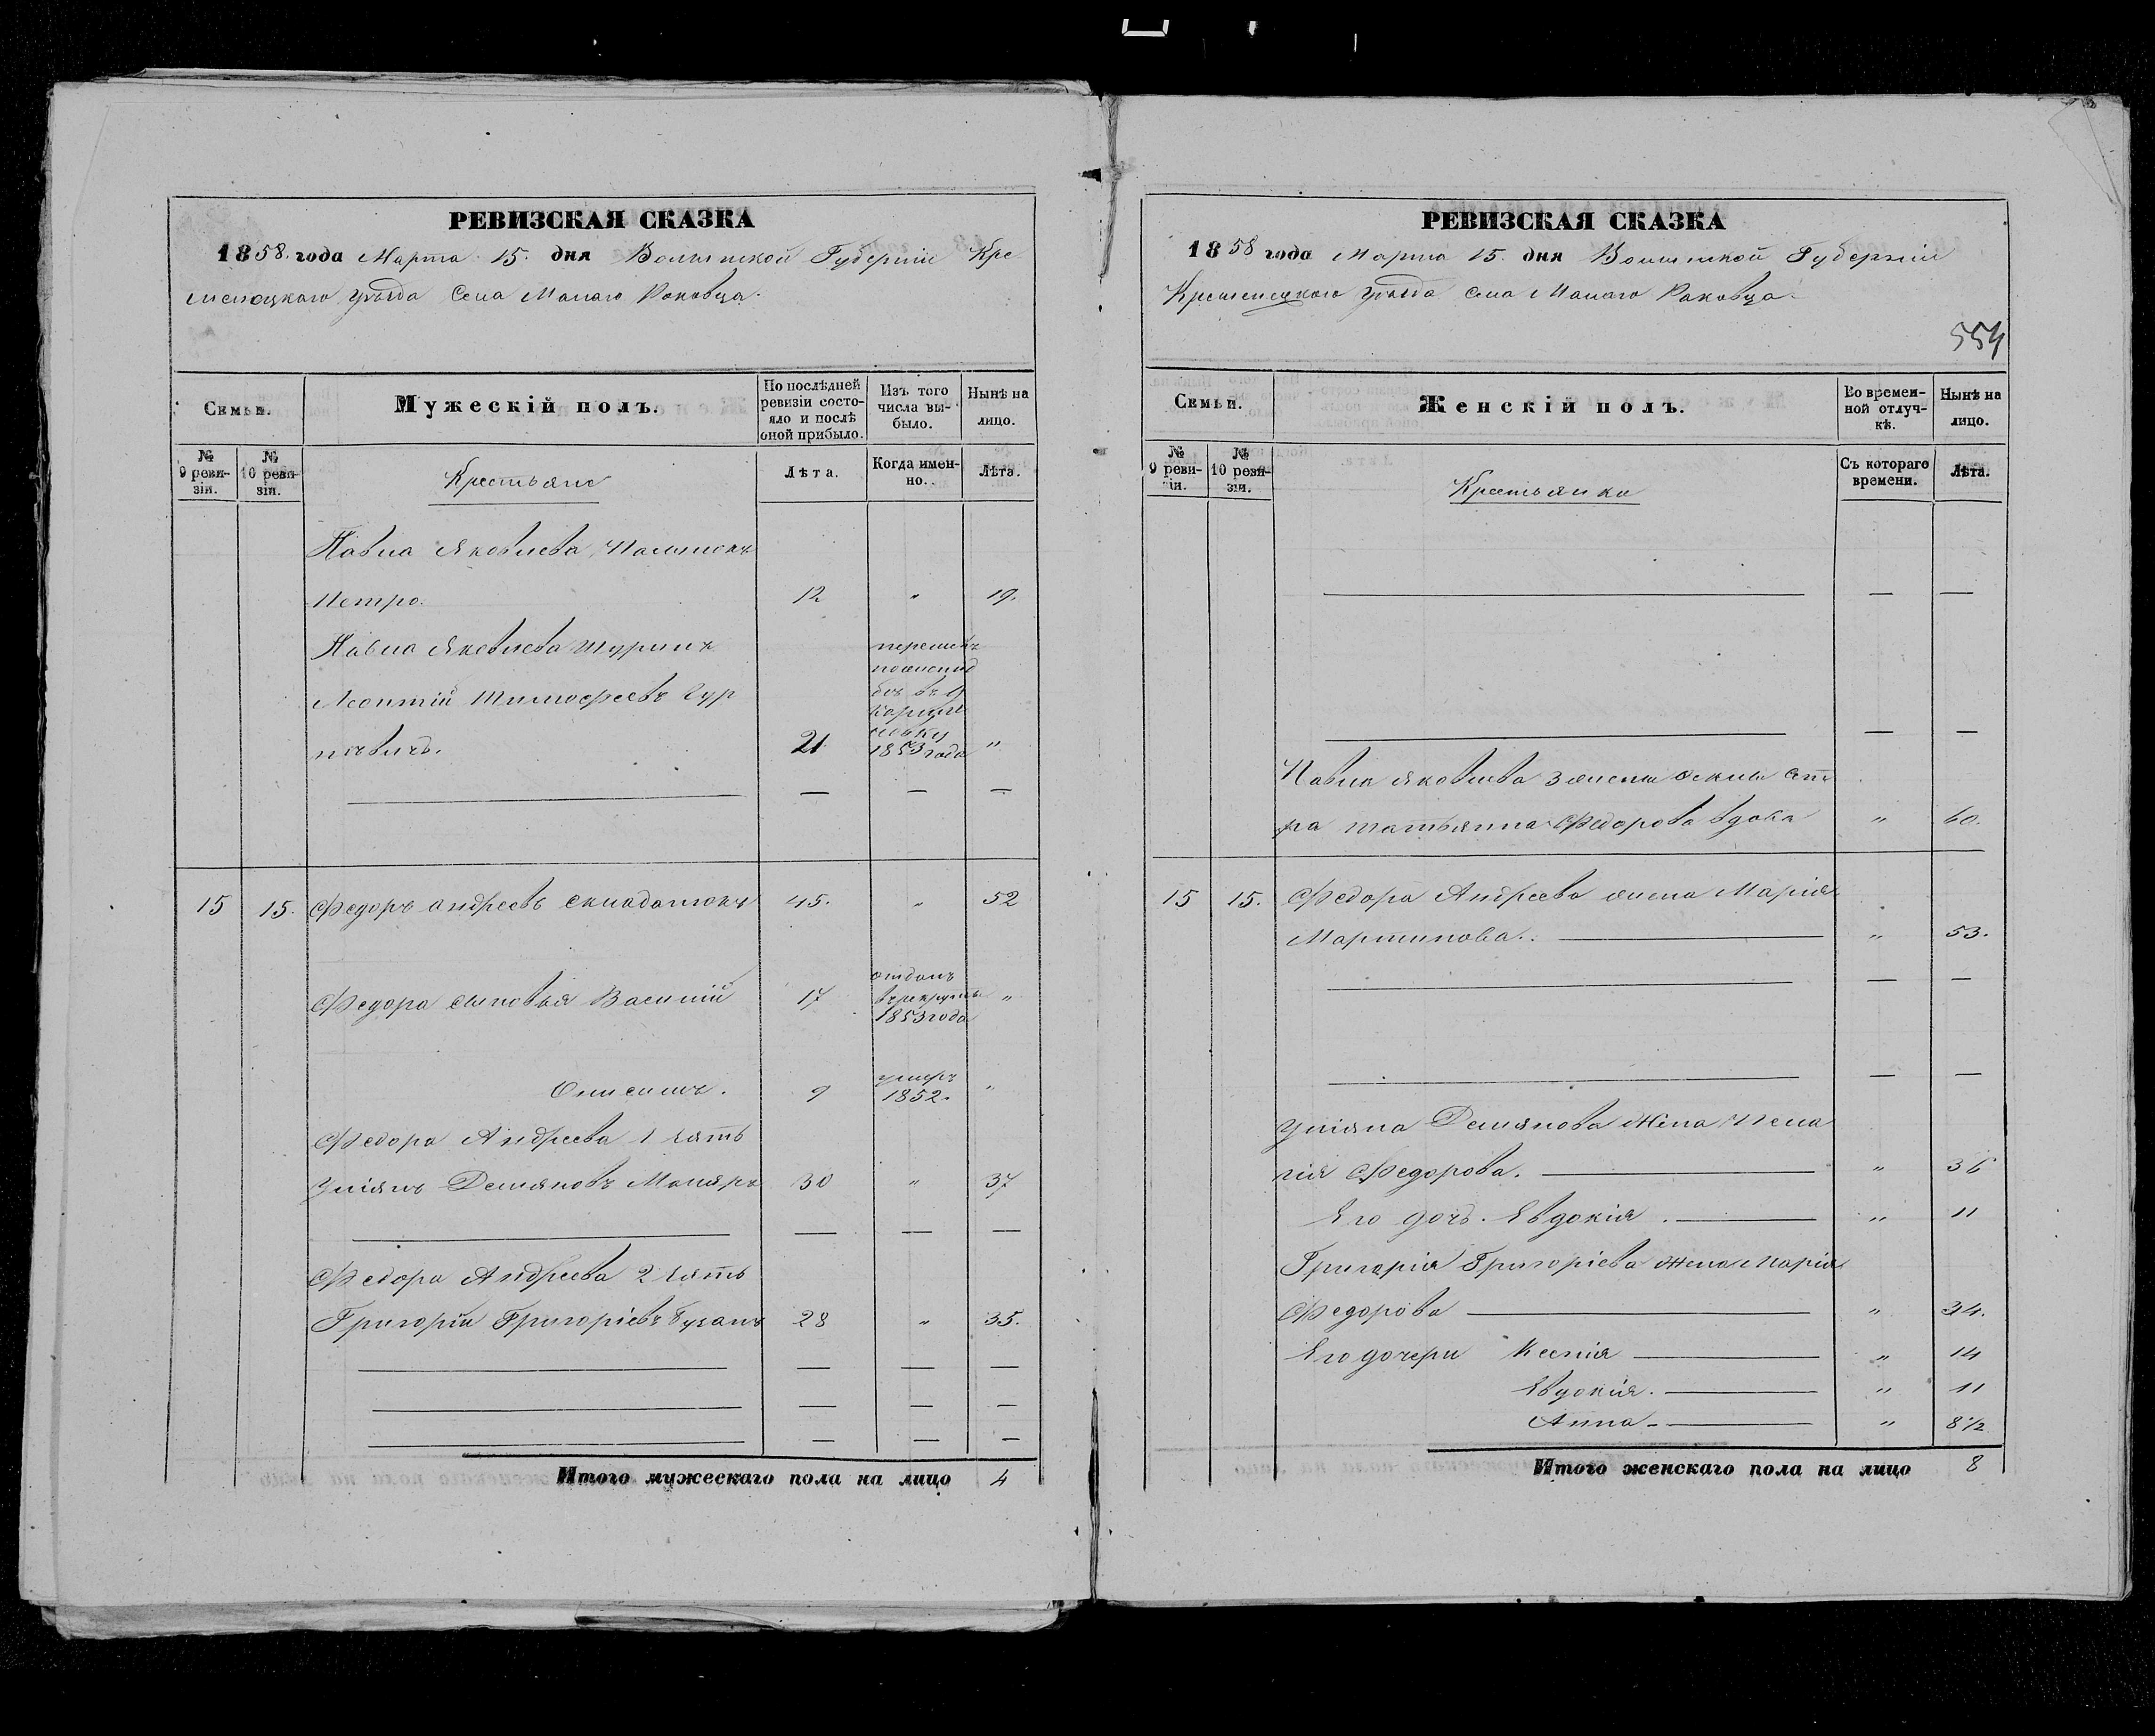 РЕВИЗСКАЯ СКАЗКА
1858. года Марта 15. дня Волынской Губерніи Кре
менецкаго уѣзда Села Малаго Раковца.
Семьи.
Мужескій полъ.
По послѣдней ревизіи состояло и послѣ оной прибыло.
Изъ того числа выбыло.
Нынѣ на лицо.
№ 9 ревизіи.
№ 10 ревизіи.
Крестьяне
Лѣта.
Когда именно.
Лѣта.
Павла Яковлева
Петро. 12 " 19.
Павла Яковлева Шуринъ
Леонтій Тимофеевъ Гур
21 1853 года "
15 15. Федоръ Андреевъ Складанюкъ 45. " 52
Федора сыновья Василій 17 отданъ в рекруты 1853 года "
Онисимъ. 9 умеръ 1852. "
Федора Андреева 1 зять
Уліянъ Демяновъ Маляръ 30 " 37
Федора Андреева 2 зять
Григорій Григоріевъ 28 " 35.
Итого мужескаго пола на лицо 4
РЕВИЗСКАЯ СКАЗКА
1858 года Марта 15. дня Волынской Губерніи
Кременецкаго уѣзда села Малаго Раковца.
554
Семьи.
Женскій полъ.
Во временной отлучкѣ.
Нынѣ на лицо.
№ 9 ревизіи.
№ 10 ревизіи.
Крестьянки
Съ котораго времени.
Лѣта.
Павла Яковлева жены сест
ра татьянна Федорова вдова " 60.
15 15. Федора Андреева жена Марія
Мартинова. " 53.
Уліяна Демянова Жена Пела
гія Федорова. " 36
Его дочь. Евдокія. " 11
Григорія Григоріева Жена Марія
Федорова " 34.
Его дочери Ксенія " 14
Евдокія. " 11
Анна " 8 1/2
Итого женскаго пола на лицо 8